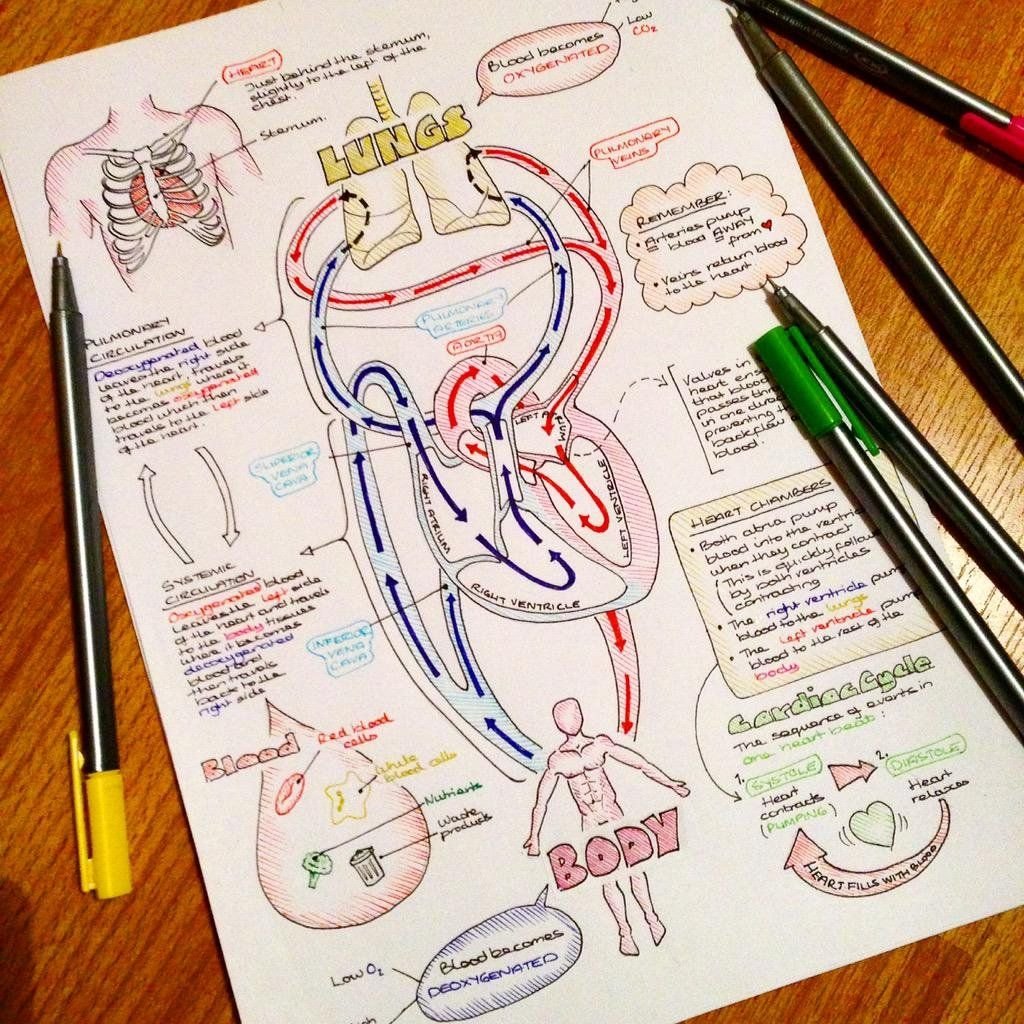 HEART
Just behind the sternum,
slightly to the left of the
chest.
Sternum.
LUNGS
Blood becomes
OXYGENATED
Low
CO2
PULMONARY
VEINS
REMEMBER:
• Arteries pump
blood AWAY
from
• Veins return blood
to the heart
PULMONARY
CIRCULATION
Deoxygenated blood
leaves the right side
of the heart, travels
to the lungs where it
becomes oxygenated
blood which then
travels to the left side
of the heart.
PULMONARY
ARTERIES
AORTA
Valves in
heart ens
that blood
passes thr
in one direc
preventing
backflow
blood.
SUPERIOR
VENA
CAVA
LEFT ATRIUM
LEFT VENTRICLE
RIGHT ATRIUM
RIGHT VENTRICLE
HEART CHAMBERS
• Both atria pump
blood into the ventric
when they contract
(This is quickly follow
by both ventricles
contracting
• The right ventricle pum
blood to the lungs
• The left ventricle pum
blood to the rest of the
body
SYSTEMIC
CIRCULATION
Oxygenated blood
leaves the left side
of the heart and travels
to the body tissues
where it becomes
deoxygenated
blood and
then travels
back to the
right side
INFERIOR
VENA
CAVA
Blood
Red blood
cells
White
blood cells
Nutrients
Waste
products
Cardiac Cycle
The sequence of events in
one heart beat:
1.
SYSTOLE
Heart
contracts
(PUMPING)
2.
DIASTOLE
Heart
relaxes
HEART FILLS WITH BLOOD
BODY
Blood becomes
DEOXYGENATED
Low O2